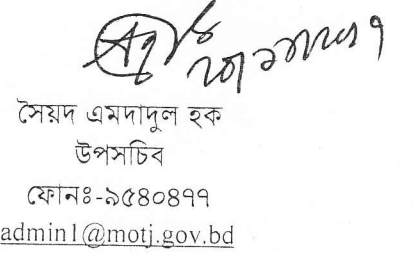 সৈয়দ এমদাদুল হক
উপসচিব
ফোনঃ-৯৫৪০৪৭৭
admin1@motj.gov.bd